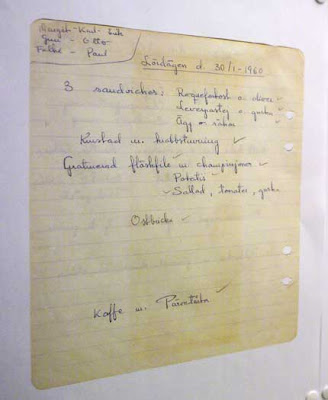 Margit - Karl - Erik
Gun - Otto
Folke - Paul
Lördagen d. 30/1 - 1960
3 sandwiches: Roquefortost o. oliver
Leverpastej o. gurka
Ägg o. räkor
Krustad m. krabbstuvning
Gratinerad fläskfilé m. champinjoner
Potatis
Sallad, tomater, gurka
Ostbricka
Kaffe m. Pärontårta